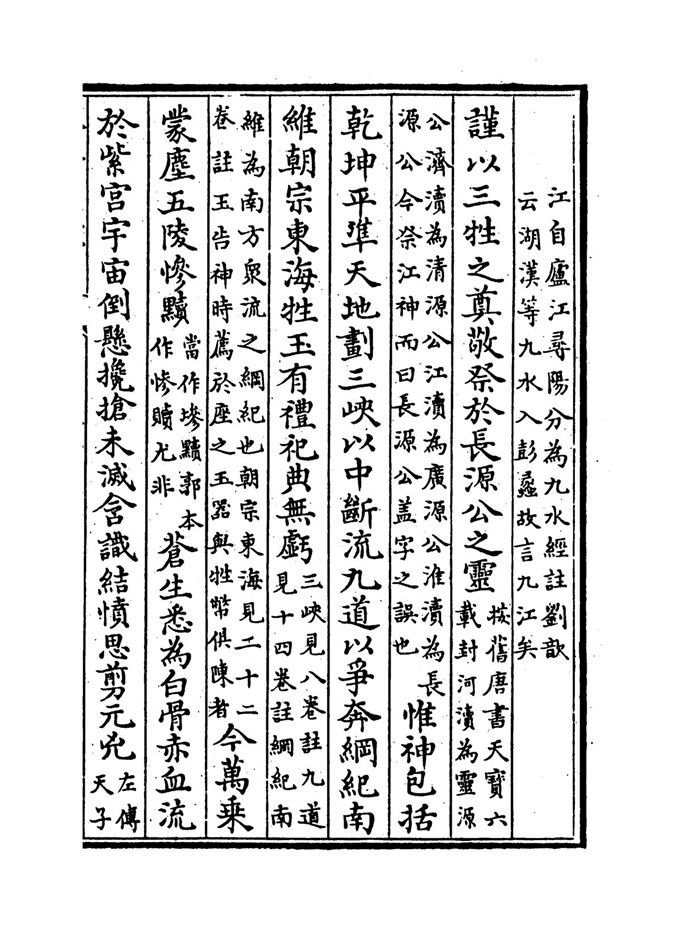 江自廬江尋陽分為九水經註劉歆
云湖漢等九水入彭蠡故言九江矣
謹以三牲之奠敬祭於長源公之靈
按舊唐書天寶六
載封河瀆為靈源
公濟瀆為清源公江瀆為廣源公淮瀆為長
源公今祭江神而曰長源公盖字之誤也
惟神包括
乾坤平準天地劃三峽以中斷流九道以爭奔綱紀南
維朝宗東海牲玉有禮祀典無虧
三峽見八卷註九道
見十四卷註綱紀南
維為南方衆流之綱紀也朝宗東海見二十二
卷註玉告神時薦於座之玉器與牲幣俱陳者
今萬乗
蒙塵五陵慘黷
當作墋黷郭本
作慘贖尤非
蒼生悉為白骨赤血流
於紫宮宇宙倒懸攙搶未滅含識結憤思剪元兇
左傳
天子